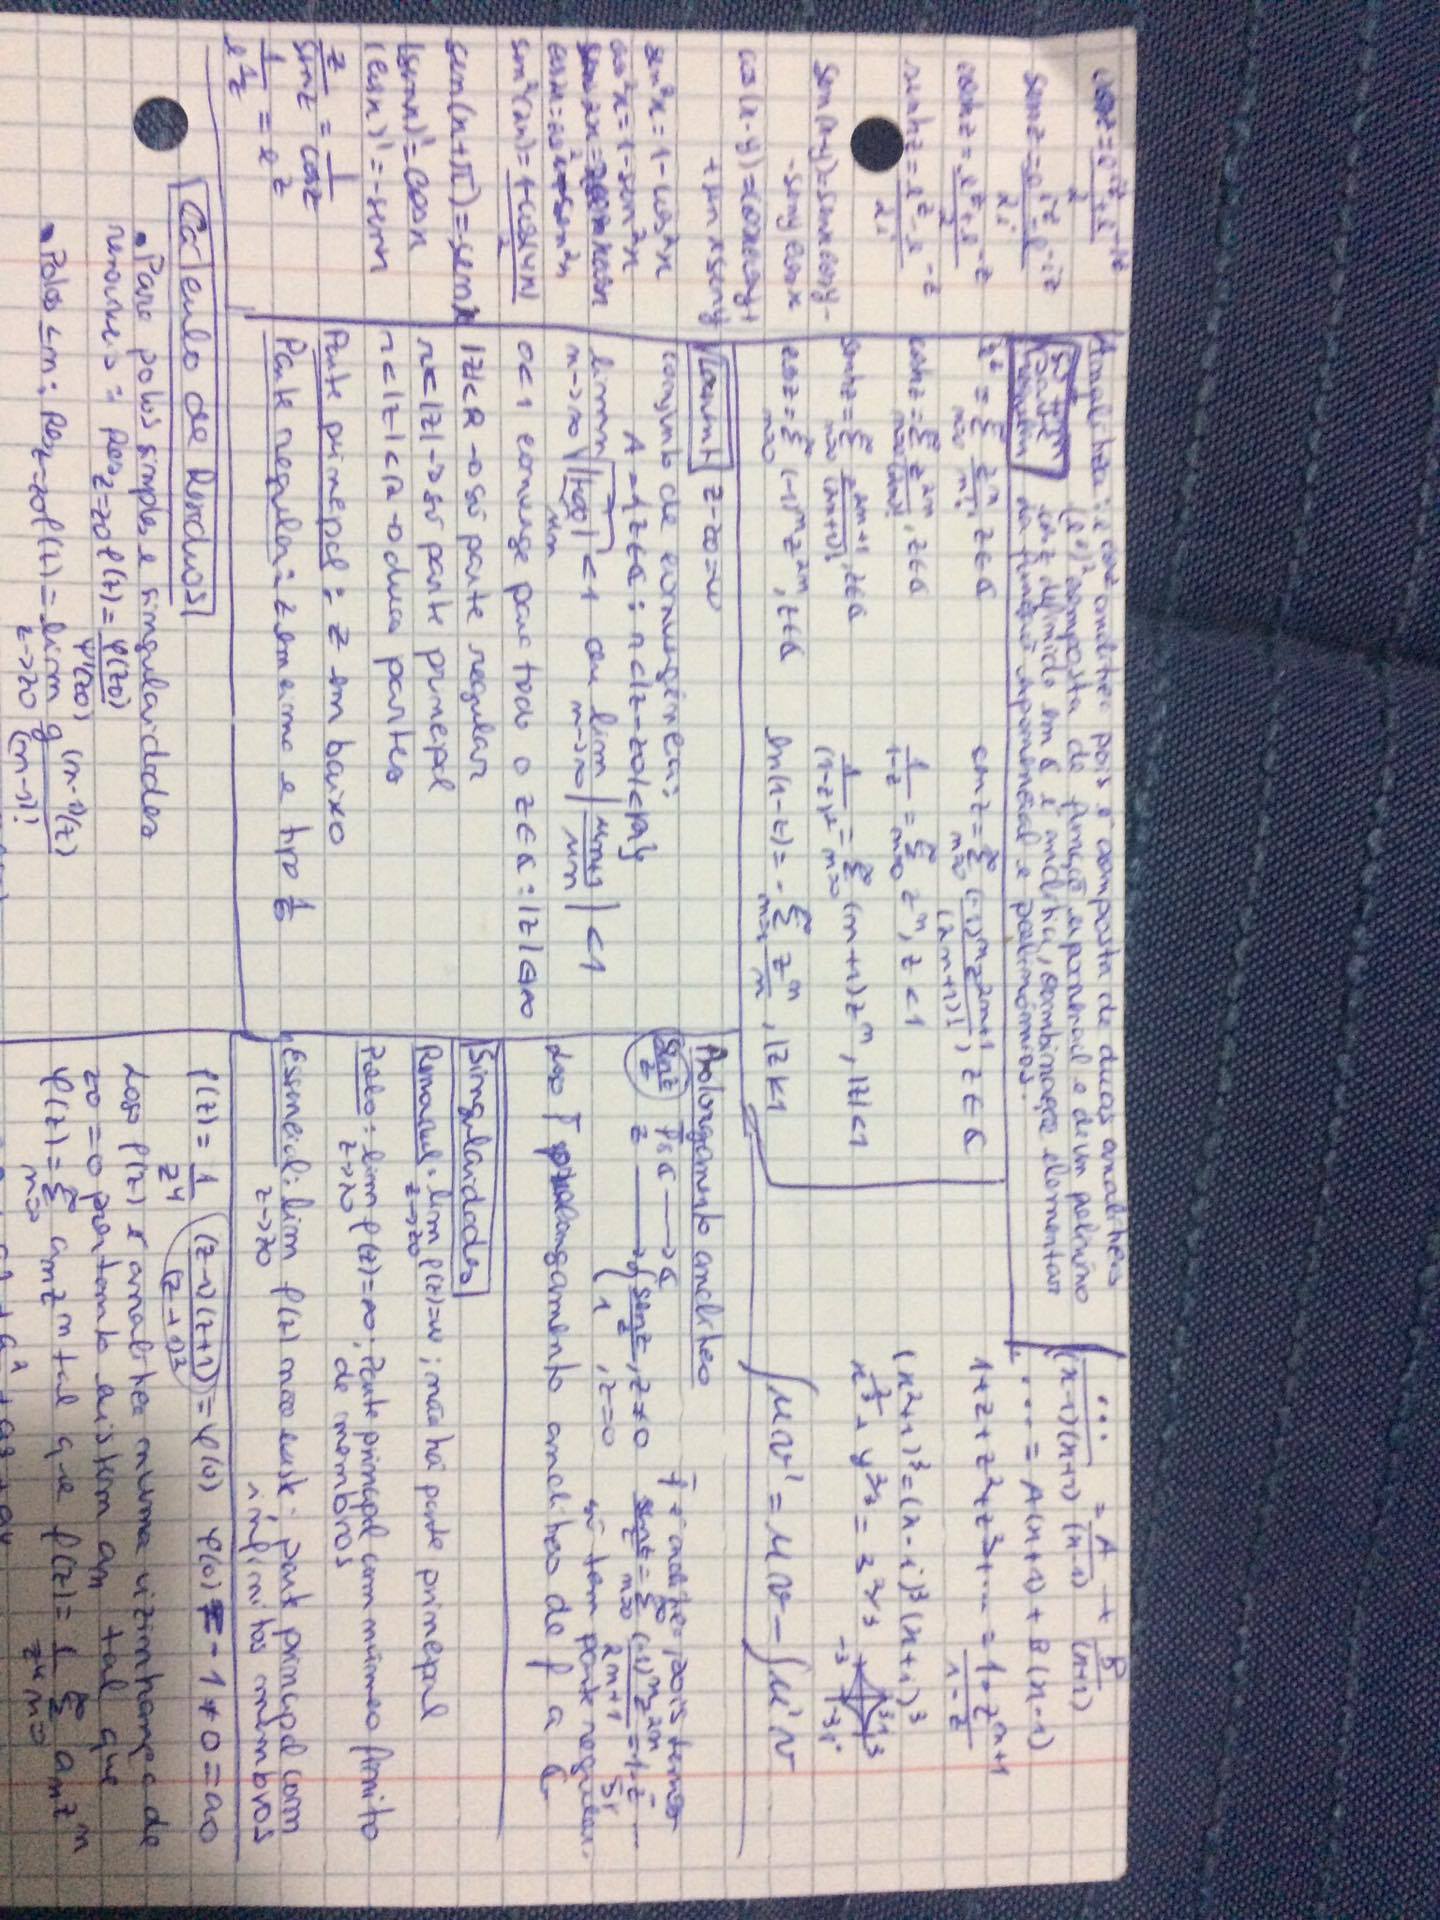 cosz = e^iz + e^-iz / 2
senz = e^iz - e^-iz / 2i
coshz = e^z + e^-z / 2
senhz = e^z - e^-z / 2i
sen(x-y) = senxcosy -
- senycosx
cos(x-y) = cosxcosy +
+ senxseny
sen²x = 1 - cos²x
cos²x = 1 - sen²x
sen²(2x) = 1-cos(4x) / 2
sen(x+π) = -senx
(senx)' = cosx
(cosx)' = -senx
z/senz = 1/cosz
1/e^(1/z) = e^z
Analitica: e^cosz analitica pois é composta de duas analiticas
(e^z)² composta de função exponencial e de um polinimo
cosz definido em C é analitica, combinação elementar
da função exponencial e polinómios.
só tem parte regular
e^z = Σ n=0 ∞ z^n/n!, z∈C
senz = Σ n=0 ∞ (-1)^n z^(2n+1) / (2n+1)!, z∈C
coshz = Σ n=0 ∞ z^2n/(2n)!, z∈C
1/(1-z) = Σ n=0 ∞ z^n, z<1
senhz = Σ n=0 ∞ z^(2n+1)/(2n+1)!, z∈C
1/(1-z)² = Σ n=0 ∞ (n+1)z^n, |z|<1
cosz = Σ n=0 ∞ (-1)^n z^2n, z∈C
ln(1-z) = -Σ n=1 ∞ z^n/n, |z|<1
... / (x-1)(x+1) = A/(x-1) + B/(x+1)
... = A(x+1) + B(x-1)
1+z+z²+z³+... = 1-z^(n+1) / 1-z
(x²+1)³ = (x-i)³(x+i)³
x^2/3 + y^2/3 = 3^2/3
3i 3
-3 -3i
∫uv' = uv - ∫u'v
Laurent z-z0=w
conjunto de convergência:
A = {z∈C : r<|z-z0|<R}
lim n→∞ n√|±∞| <1 ou lim n→∞ |un+1/un| <1
un
0<1 converge para todo o z∈C : |z|<∞
|z|<R → só parte regular
r<|z| → só parte principal
r<|z|<R → duas partes
Parte principal: z em baixo
Parte regular: z em cima e tipo 1/6
Prolongamento analitico
senz/z f: C → C
z → { senz/z, z≠0
1, z=0
f é analitica, pois temos
senz/z = Σ n=0 ∞ (-1)^n z^2n / 2n+1 = 1 - z/5! ...
só tem parte regular.
Logo f prolongamento analitico de f a C
Singularidades
Removivel: lim z→z0 f(z)=w; não há parte principal
Polo: lim z→z0 f(z)=∞; Parte principal com número finito
de membros
Essencial: lim z→z0 f(z) não existe; parte principal com
infinitos membros
Cálculo de Residuos
• Para polos simples e singularidades
removiveis: Res z=z0 f(z) = φ(z0)/ψ'(z0)
• Polos ≤n: Res z=z0 f(z) = lim z→z0 g^(n-1)(z) / (n-1)!
f(z) = 1/z⁴ (z-1)(z+1)/(z+1)² = φ(0) φ(0) = -1 ≠ 0 = a0
Logo f(z) é analitica numa vizinhança de
z0 = 0 portanto existem an tal que
φ(z) = Σ n=0 ∞ an z^n tal que f(z) = 1/z⁴ Σ n=0 ∞ an z^n